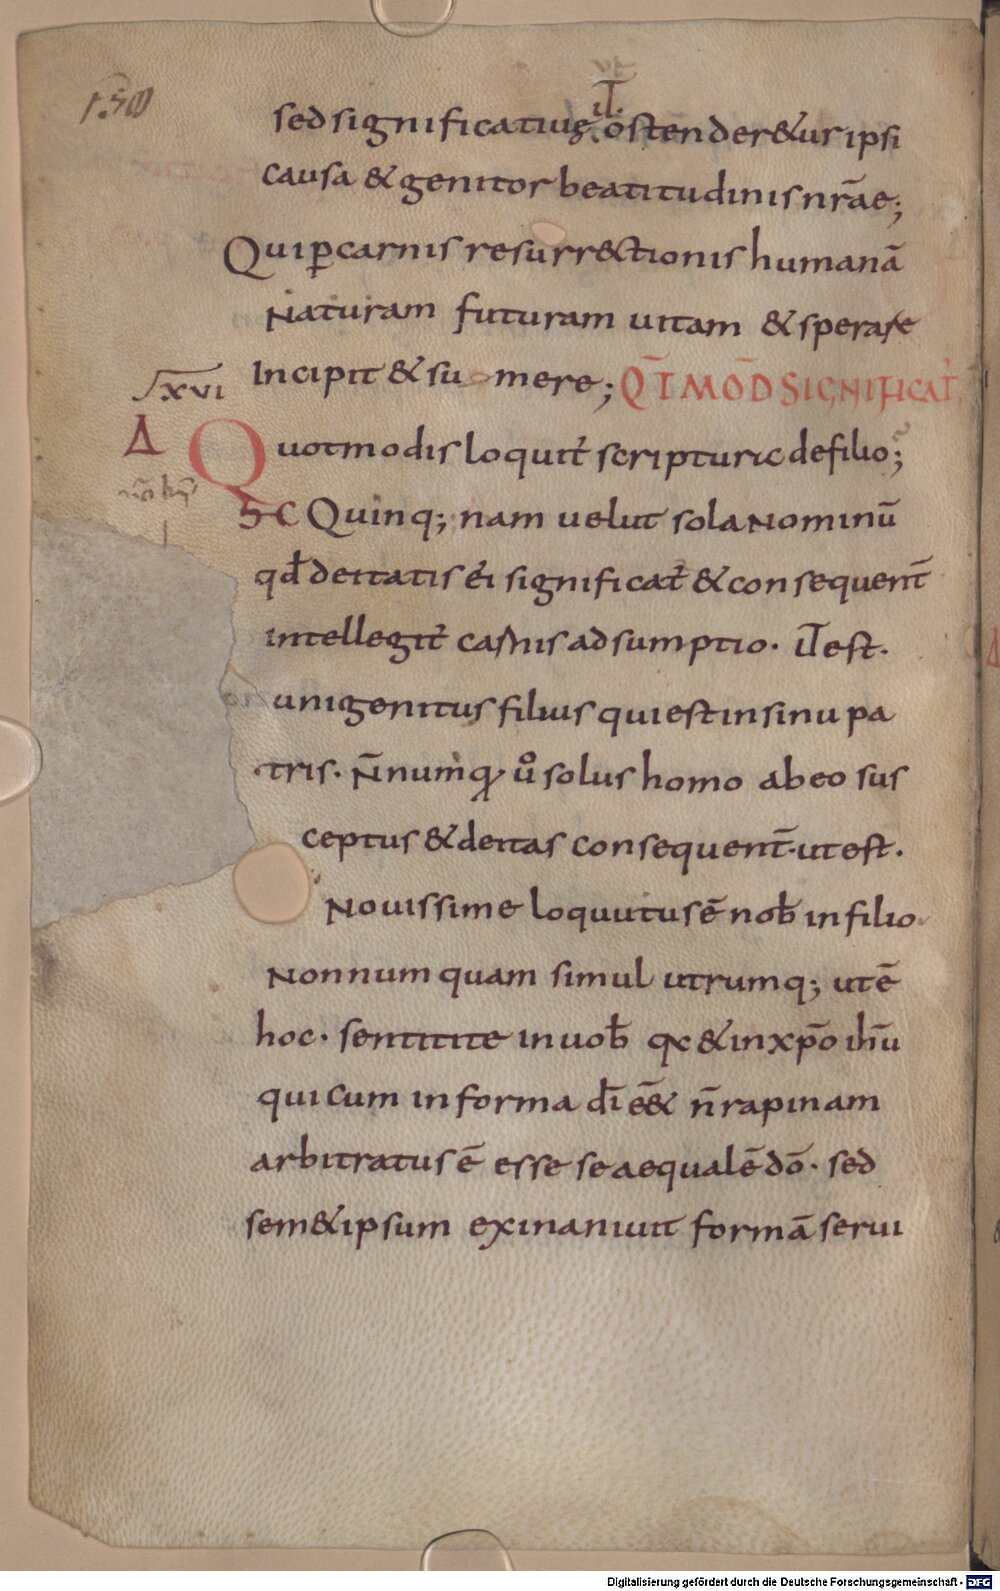 150
sed significatius. iƚ. ostender&ur ipsi
causa & genitor beatitudinis nr̄ae;
Qui ꝑ carnis resurr&ctionis humanā
Naturam futuram uitam & sperare
Incipit & su mere; Q̄T MOD̄ SIGNIFICAT̄.
XVI
Δ Quot modis loquit̄ scripturic de filio;
ħc Quinq; nam uelut sola Nominū
qđ deitatis ei significat̄ & consequent̄
intellegit̄ carnis adsumptio. iƚ est.
unigenitus filius qui est in sinu pa
tris. N̄numq̄ ů solus homo ab eo sus
ceptus & deitas consequent̄. ut est.
Nouissime loquutus ē nob̄ in filio.
Non numquam simul utrumq; ut ē
hoc. sentitite in uob̄ qc & in xp̄o ihū
qui cum in forma dī ēē& n̄ rapinam
arbitratus ē esse se aequalē dō. sed
sem&ipsum exinaniuit formā serui
Digitalisierung gefördert durch die Deutsche Forschungsgemeinschaft - DFG